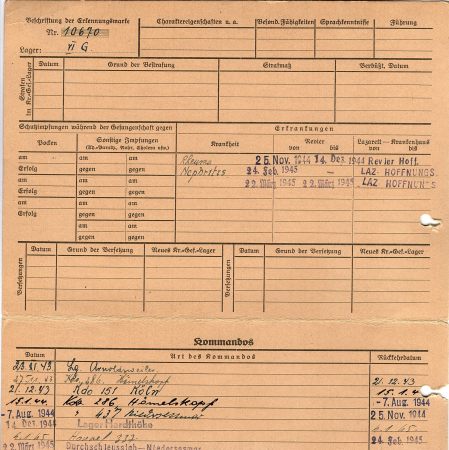 Beschriftung der Erkennungsmarke
Nr. 10670
Lager: VI G
Charaktereigenschaften u. a.
Besond. Fähigkeiten
Sprachkenntnisse
Führung
Strafen im Kr.-Gef.-Lager
Datum
Grund der Bestrafung
Strafmaß
Verbüßt, Datum
Schutzimpfungen während der Gefangenschaft gegen
Erkrankungen
Pocken
Sonstige Impfungen
(Ty.-Paraty., Ruhr, Cholera usw.)
Krankheit
Revier
von bis
Lazarett — Krankenhaus
von bis
am am am
Erfolg gegen gegen
am am am
Erfolg gegen gegen
am am am
Erfolg gegen gegen
am am
gegen gegen
Rheuma 25. Nov. 1944 14. Dez. 1944 Revier Hoff.
Nephritis 24. Feb. 1945 — LAZ. HOFFNUNGS
22. März 1945 22. März 1945 LAZ. HOFFNUNGS
Versetzungen
Datum
Grund der Versetzung
Neues Kr.-Gef.-Lager
Versetzungen
Datum
Grund der Versetzung
Neues Kr.-Gef.-Lager
Kommandos
Datum
Art des Kommandos
Rückkehrdatum
23. XI. 43 Lg. Arnoldsweiler
27. 11. 43 Kdo 286 Hämelskopf 21. 12. 43
21. 12. 43 Kdo 151 Köln 15. 1. 4
15. 1. 44 Kdo 286 Hämelskopf -7. Aug. 1944
-7. Aug. 1944 " 437 25. Nov. 1944
14. Dez. 1944 Lager Hardthöhe
6. 1. 45
22. März 1945 Durchschleuslgh - Niederses